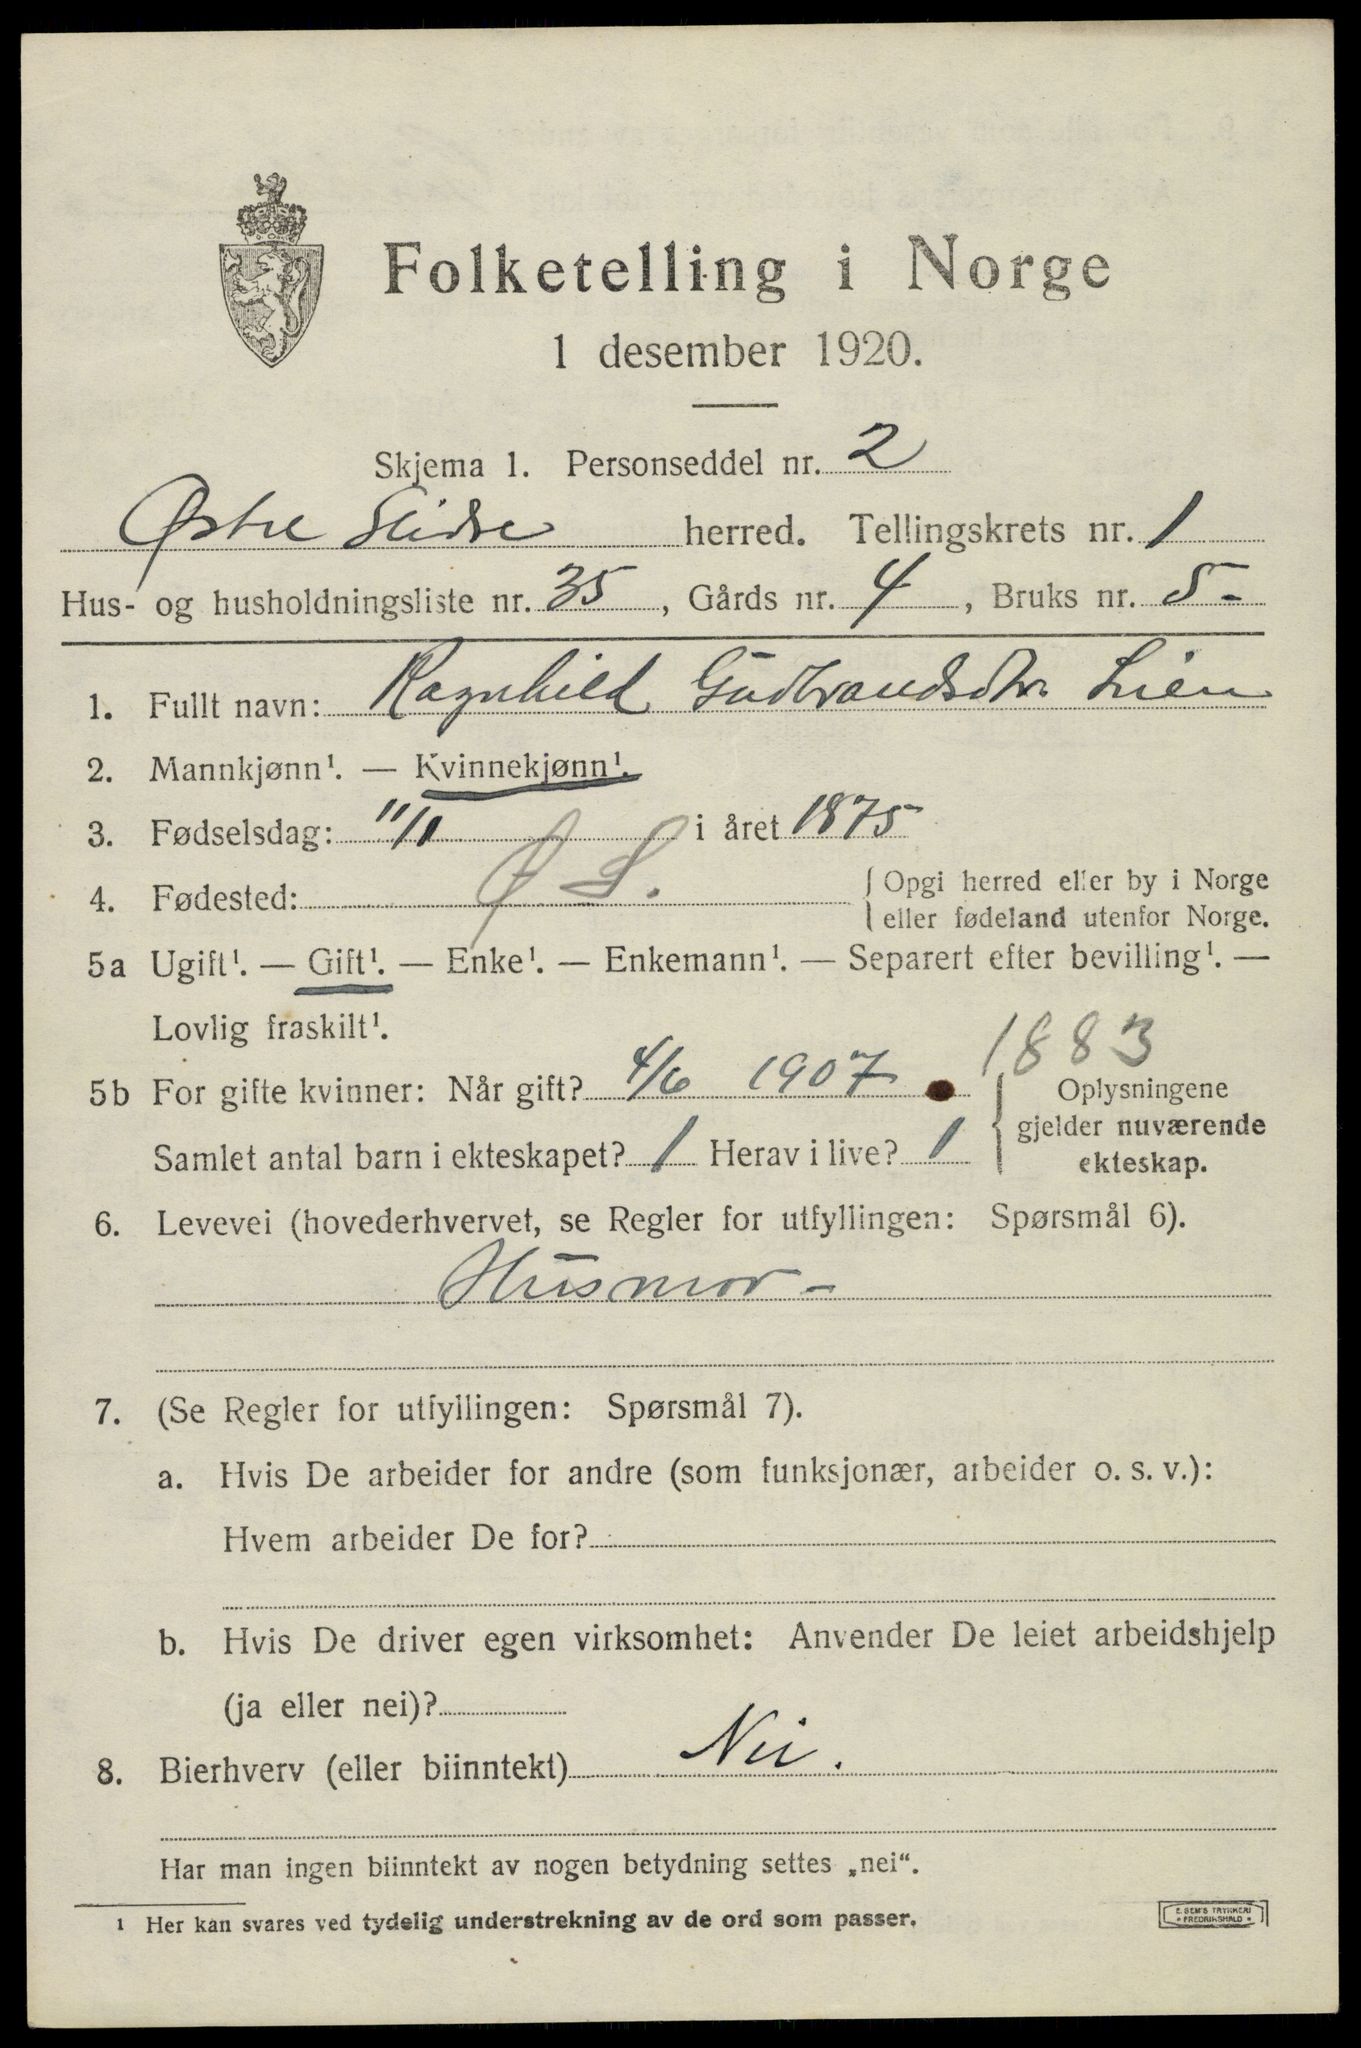 Folketelling i Norge
1 desember 1920.
Skjema 1. Personseddel nr. 2
Østre Slidre herred. Tellingskrets nr. 1
Hus- og husholdningsliste nr. 35, Gårds nr. 4, Bruks nr. 5-
1. Fullt navn: Ragnhild Gudbrandsdtr. Lien
2. Mannkjønn¹. — Kvinnekjønn¹.
3. Fødselsdag: 11/1 i året 1875
4. Fødested: Ø S. { Opgi herred eller by i Norge
eller fødeland utenfor Norge.
5a Ugift¹. — Gift¹. — Enke¹. — Enkemann¹. — Separert efter bevilling¹. —
Lovlig fraskilt¹.
1883
5b For gifte kvinner: Når gift? 4/6 1907
Samlet antal barn i ekteskapet? 1 Herav i live? 1
{ Oplysningene
gjelder nuværende
ekteskap.
6. Levevei (hovederhvervet, se Regler for utfyllingen: Spørsmål 6).
Husmor -
7. (Se Regler for utfyllingen: Spørsmål 7).
a. Hvis De arbeider for andre (som funksjonær, arbeider o. s. v.):
Hvem arbeider De for?
b. Hvis De driver egen virksomhet: Anvender De leiet arbeidshjelp
(ja eller nei)?
8. Bierhverv (eller biinntekt) Nei.
Har man ingen biinntekt av nogen betydning settes „nei“.
¹ Her kan svares ved tydelig understrekning av de ord som passer.
E. SEM'S TRYKKERI
* FREDRIKSHALD *